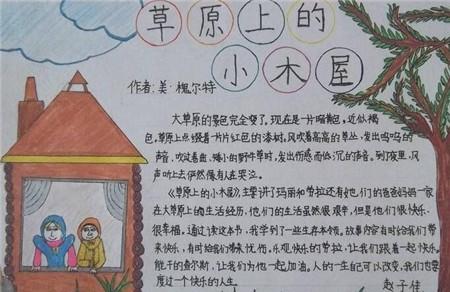 草原上的
小木屋
作者:美·槐尔特
大草原的景色完全变了,现在是一片暗黄色,近似褐
色,草原上点缀着一片片红色的漆树。风吹着高高的草丛,发出呜呜的
声音,吹过卷曲、矮小的野牛草时,发出伤感而低沉的声音。到夜里,风
声听上去俨然像有人在哭泣。
《草原上的小木屋》主要讲了玛丽和劳拉还有她们的爸爸妈妈一家
在大草原上的生活经历,他们的生活虽然很艰辛,但是他们很快乐、
很幸福。通过读这本书,我学到了一些生存本领。故事内容有时给我们带
来快乐,有时给我们带来忧伤。乐观、快乐的劳拉,让我们跟着一起快乐。
能干的查尔斯,让我们为他一起加油。人的一生自己可以改变,我们也要
度过一个快乐的人生。
赵子佳